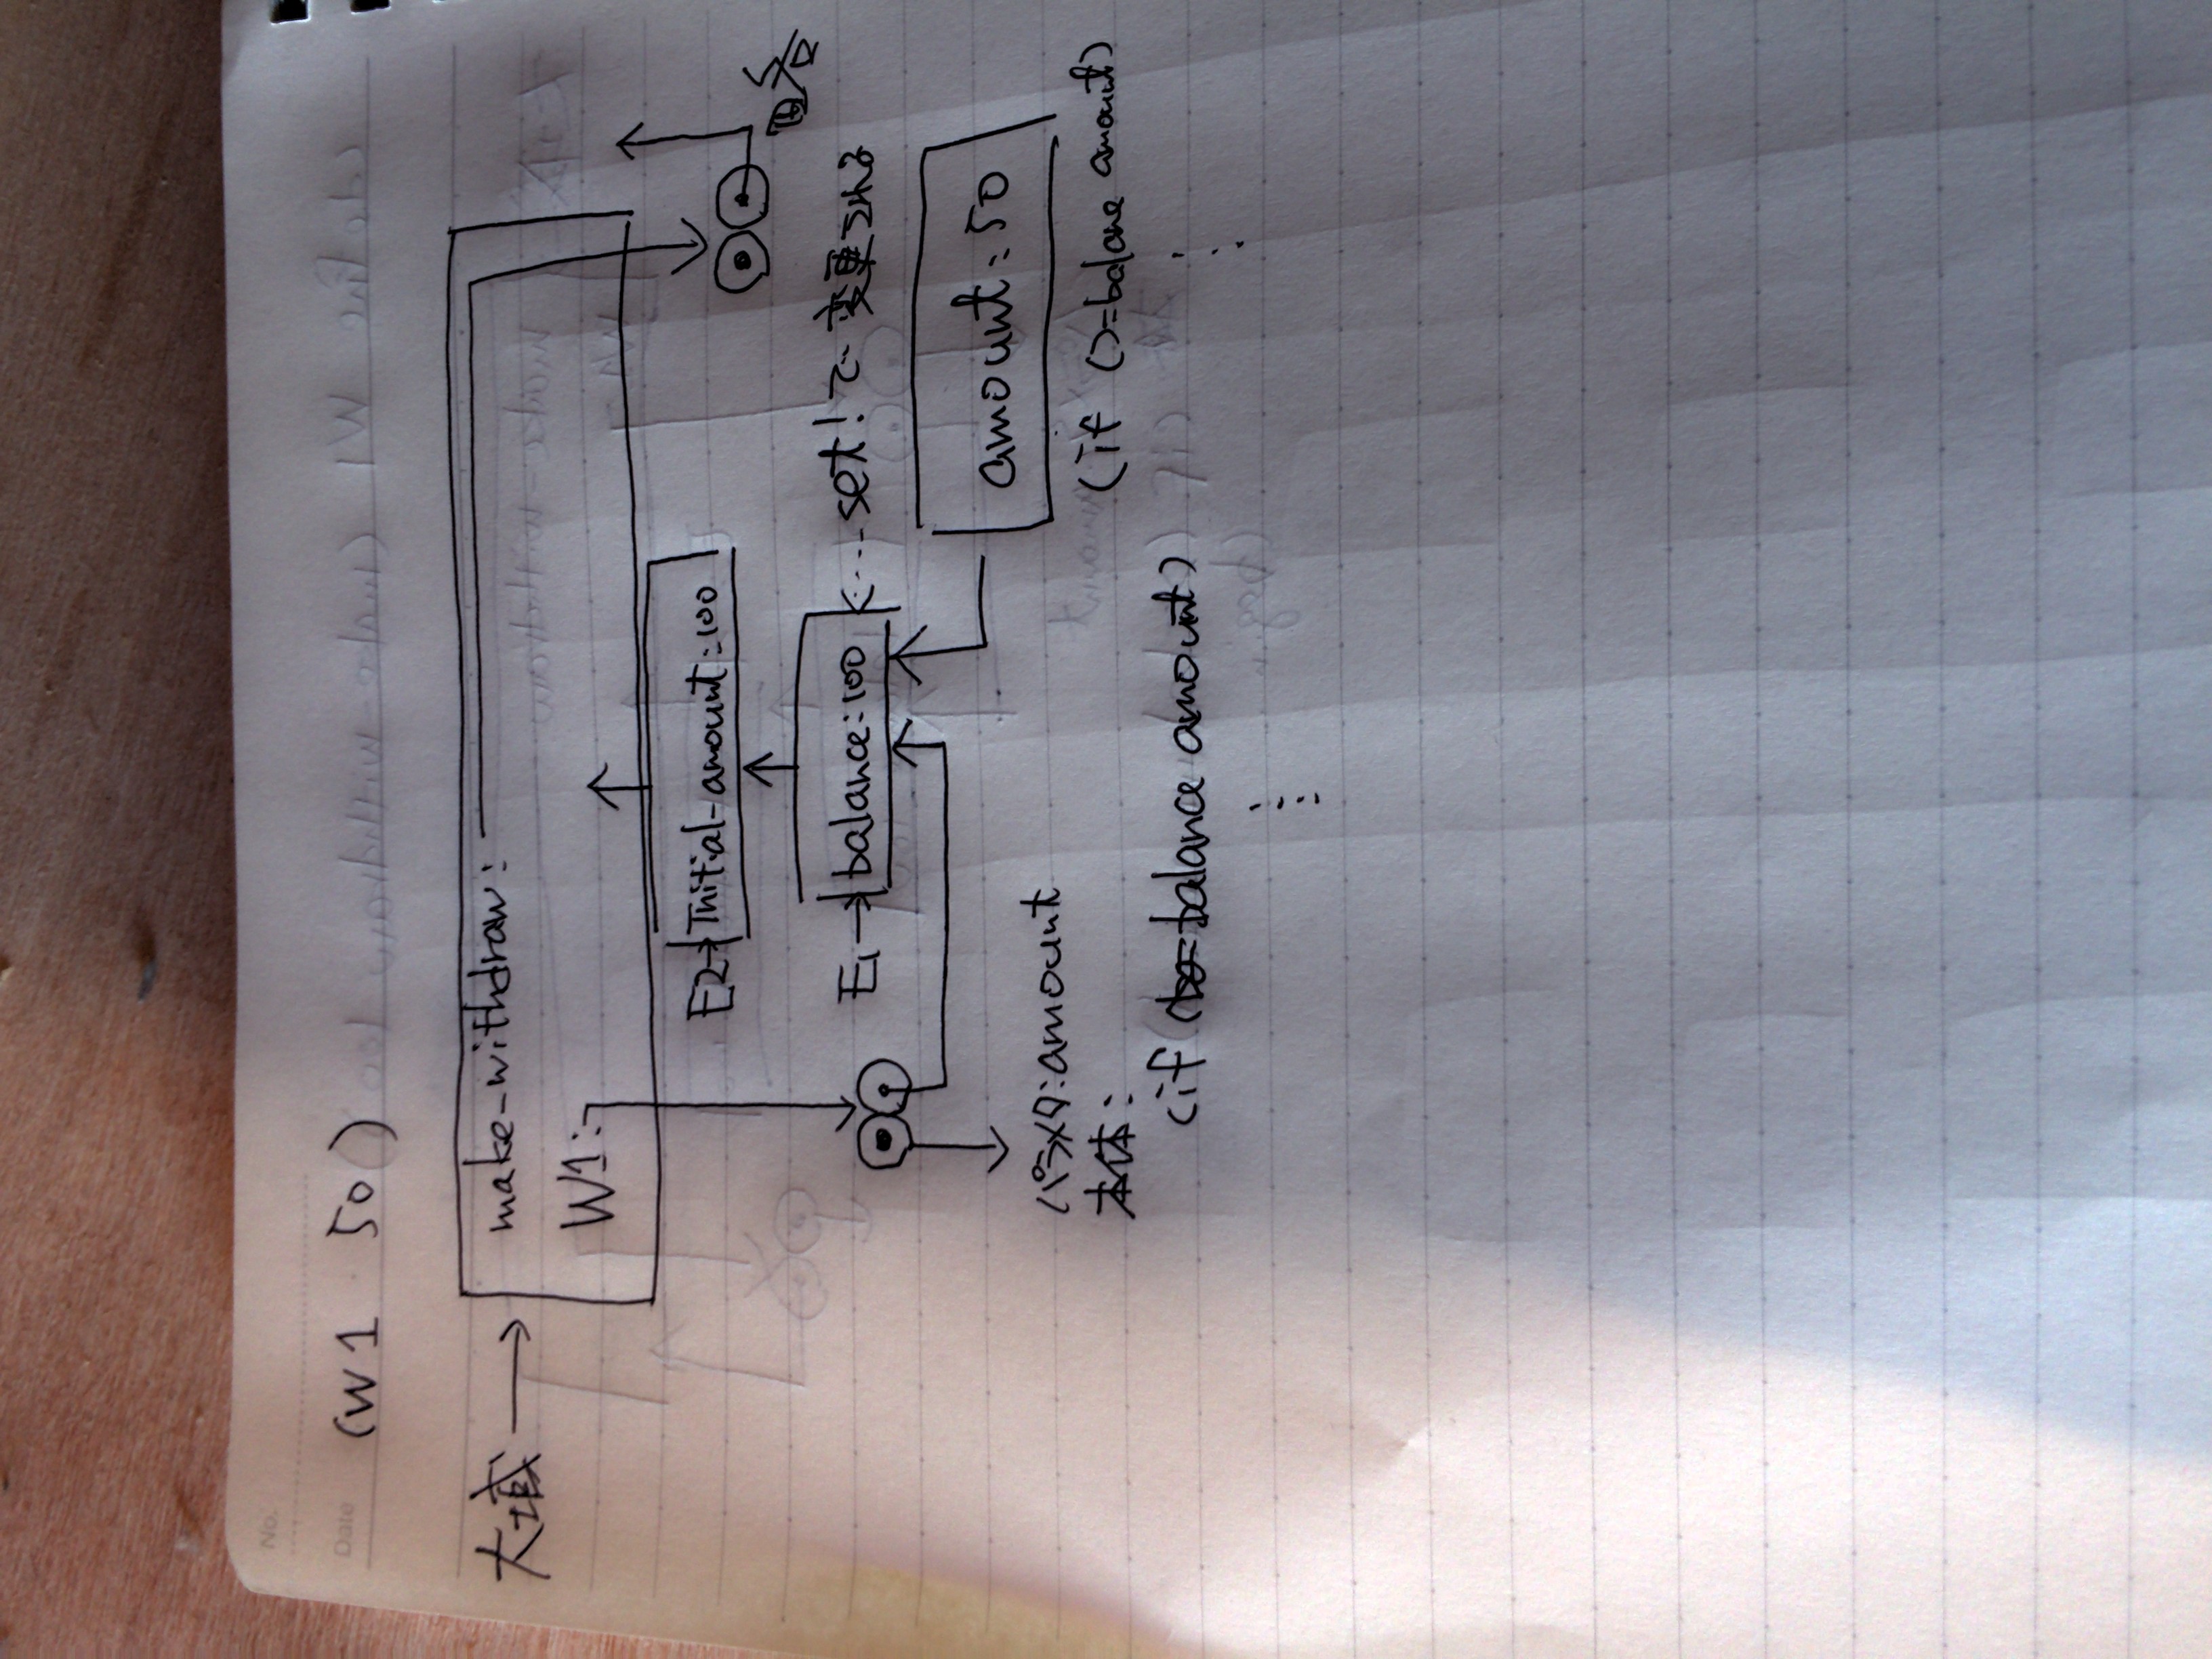 No.
Date
(W1 50)
大域
make-withdraw:
W1:
E2 Initial-amount:100
E1 balance:100 set!で変更される
amount:50
パラメタ:amount
本体:
(if (>=balane amount)
(if (>=balance amount)